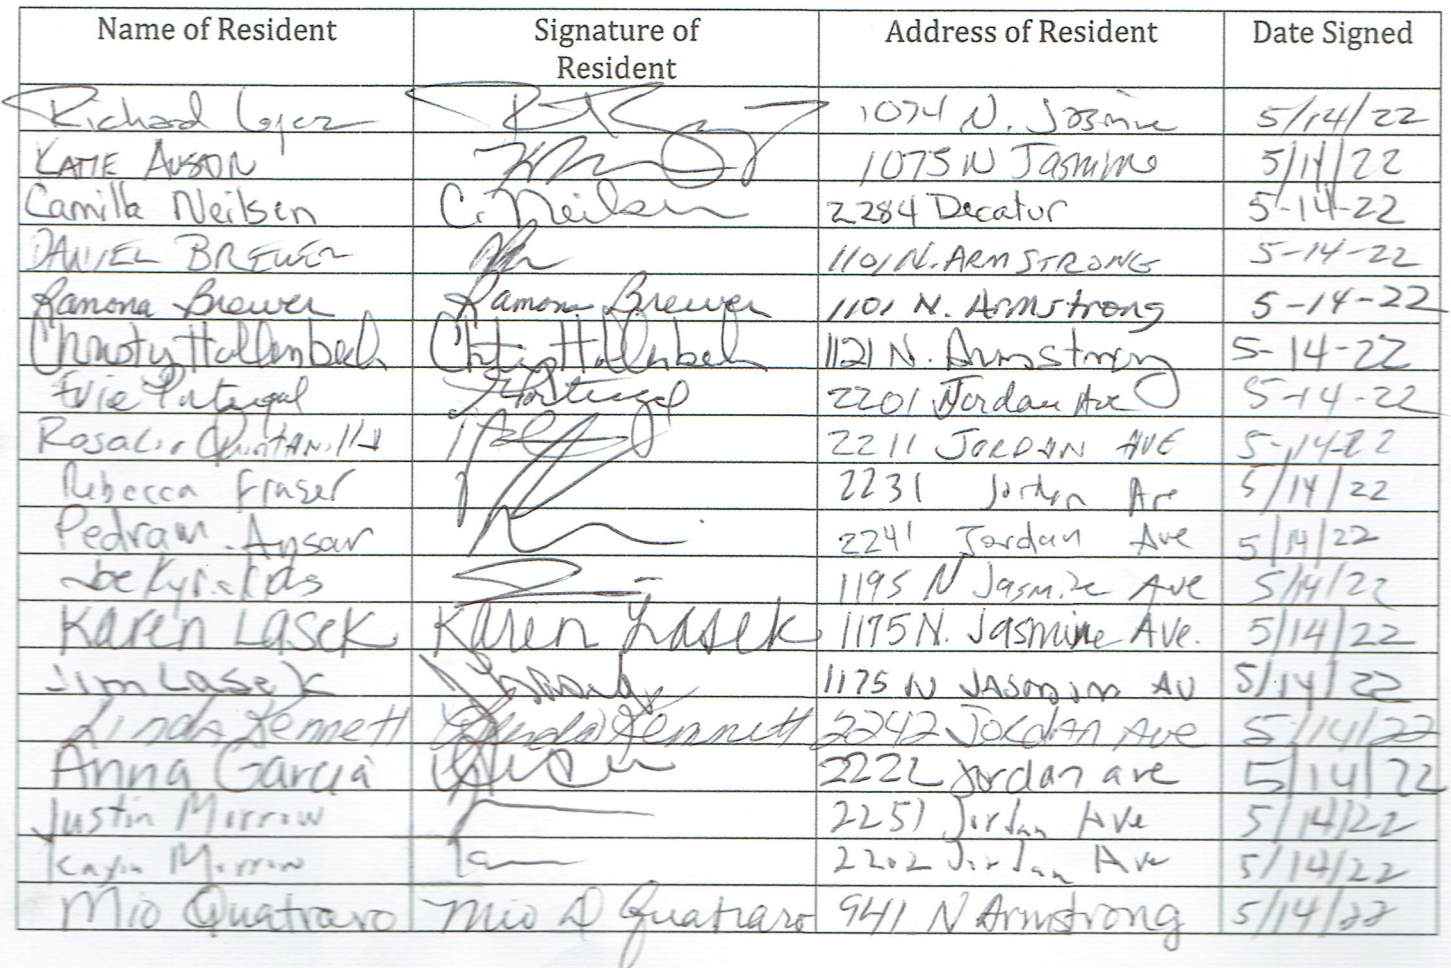 Name of Resident Signature of Resident Address of Resident Date Signed
Richard Lopez 1074 N. Jasmine 5/14/22
KATIE 1075 N Jasmine 5/14/22
Camilla Neilsen C. Neilsen 2284 Decatur 5-14-22
DANIEL BREWER 1101 N. ARMSTRONG 5-14-22
Ramona Brewer Ramona Brewer 1101 N. Armstrong 5-14-22
Christy Hollenbech 1121 N. Armstrong 5-14-22
Evie Portugal Portugal 2201 Jordan Ave 5-14-22
Rosalio Quintanilla 2211 JORDAN AVE 5-14-22
Rebecca Fraser 2231 Jordan Ave 5/14/22
Pedram Ansar 2241 Jordan Ave 5/14/22
Joe 1195 N Jasmine Ave 5/14/22
Karen Lasek Karen Lasek 1175 N. Jasmine Ave. 5/14/22
Jim Lasek 1175 N JASMIN AV 5/14/22
Linda Kennett Linda Kennett 2242 Jordan Ave 5/14/22
Anna Garcia 2222 Jordan ave 5/14/22
Justin Morrow 2251 Jordan Ave 5/14/22
Morrow 2202 Jordan Ave 5/14/22
Mio Quatraro Mio D Quatraro 941 N Armstrong 5/14/22